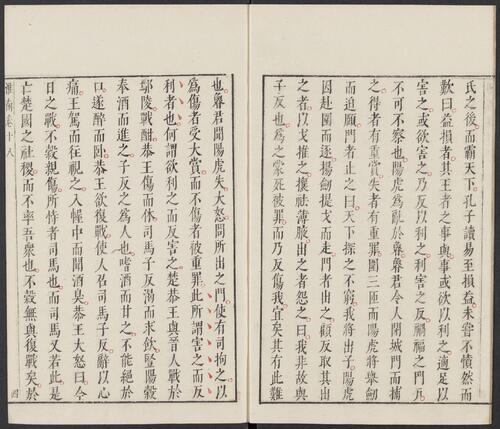 氏之後而霸天下孔子讀易至損益未嘗不憤然而
歎曰益損者其王者之事與事或欲以利之適足以
害之或欲害之乃反以利之利害之反禍福之門凡
不可不察也陽虎爲亂於魯魯君令人閉城門而捕
之得者有重賞失者有重罪圍三匝而陽虎將舉劒
而迫頤門者止之曰天下探之不窮我將出子陽虎
因赴圍而逐揚劒提戈而走門者出之顧反取其出
之者以戈推之攘袪薄腋出之者怨之曰我非故與
子反也爲之蒙死被罪而乃反傷我宜矣其有此難
也魯君聞陽虎失大怒問所出之門使有司拘之以
爲傷者受大賞而不傷者被重罪此所謂害之而反
利者也何謂欲利之而反害之楚恭王與晉人戰於
鄢陵戰酣恭王傷而休司馬子反渴而求飲豎陽穀
奉酒而進之子反之爲人也嗜酒而甘之不能絕於
口遂醉而臥恭王欲復戰使人召司馬子反辭以心
痛王駕而往視之入幄中而聞酒臭恭王大怒曰今
日之戰不穀親傷所恃者司馬也而司馬又若此是
亡楚國之社稷而不率吾衆也不穀無與復戰矣於
淮南卷十八
四